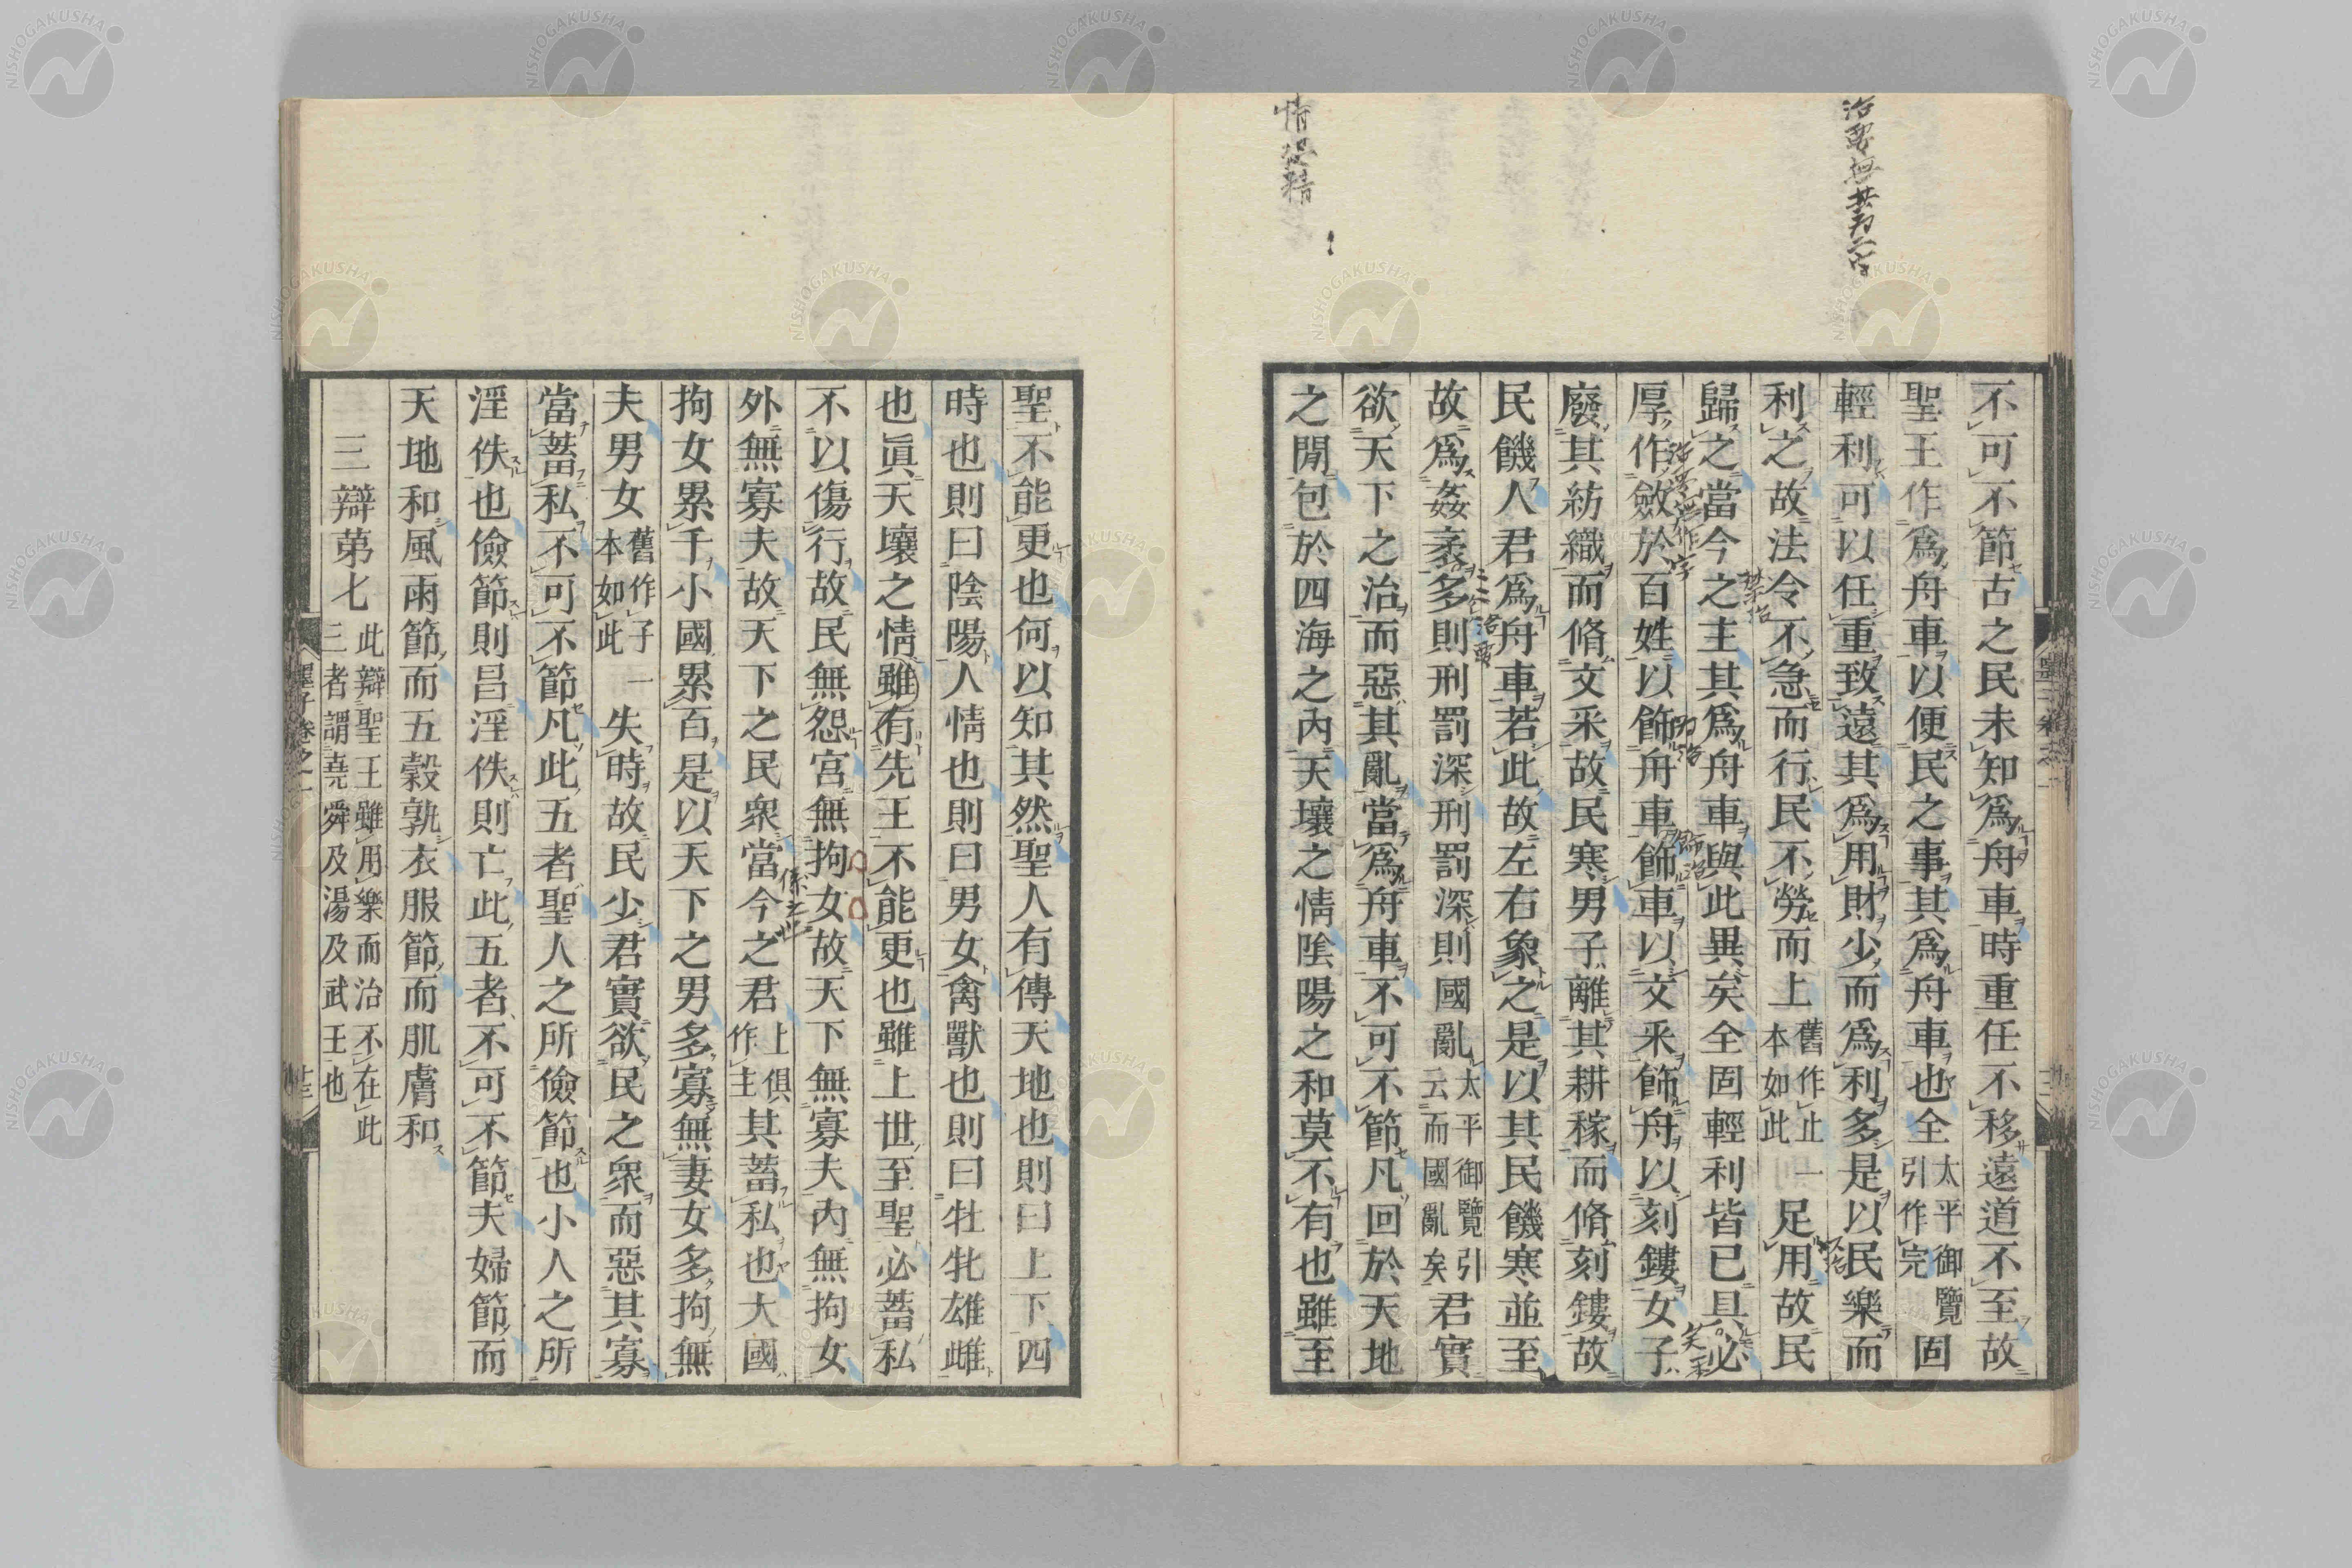 不可不節古之民未知爲舟車時重任不移遠道不至故
聖王作爲舟車以便民之事其爲舟車也全太平御覽引作完固
輕利可以任重致遠其爲用財少而爲利多是以民樂而
利之故法令不急而行民不勞而上舊本作止一本如此足用故民
歸之當今之主其爲舟車與此異矣全固輕利皆已具必
厚作斂於百姓以飾舟車飾車以文采飾舟以刻鏤女子
廢其紡織而脩文采故民寒男子離其耕稼而脩刻鏤故
民饑人君爲舟車若此故左右象之是以其民饑寒並至
故爲姦衺多則刑罰深刑罰深則國亂太平御覽引云而國亂矣君實
欲天下之治而惡其亂當爲舟車不可不節凡回於天地
之閒包於四海之內天壤之情陰陽之和莫不有也雖至
聖不能更也何以知其然聖人有傳天地也則曰上下四
時也則曰陰陽人情也則曰男女禽獸也則曰牡牝雄雌
也眞天壤之情雖有先王不能更也雖上世至聖必蓄私
不以傷行故民無怨宮無拘女故天下無寡夫內無拘女
外無寡夫故天下之民衆當今之君上俱作主其蓄私也大國
拘女累千小國累百是以天下之男多寡無妻女多拘無
夫男女舊作子一本如此失時故民少君實欲民之衆而惡其寡
當蓄私不可不節凡此五者聖人之所儉節也小人之所
淫佚也儉節則昌淫佚則亡此五者不可不節夫婦節而
天地和風雨節而五穀孰衣服節而肌膚和
三辯第七此辯聖王雖用樂而治不在此三者謂堯舜及湯及武王也
墨子卷之一
情從精
治要無其爲二字
NISHOGAKUSHA